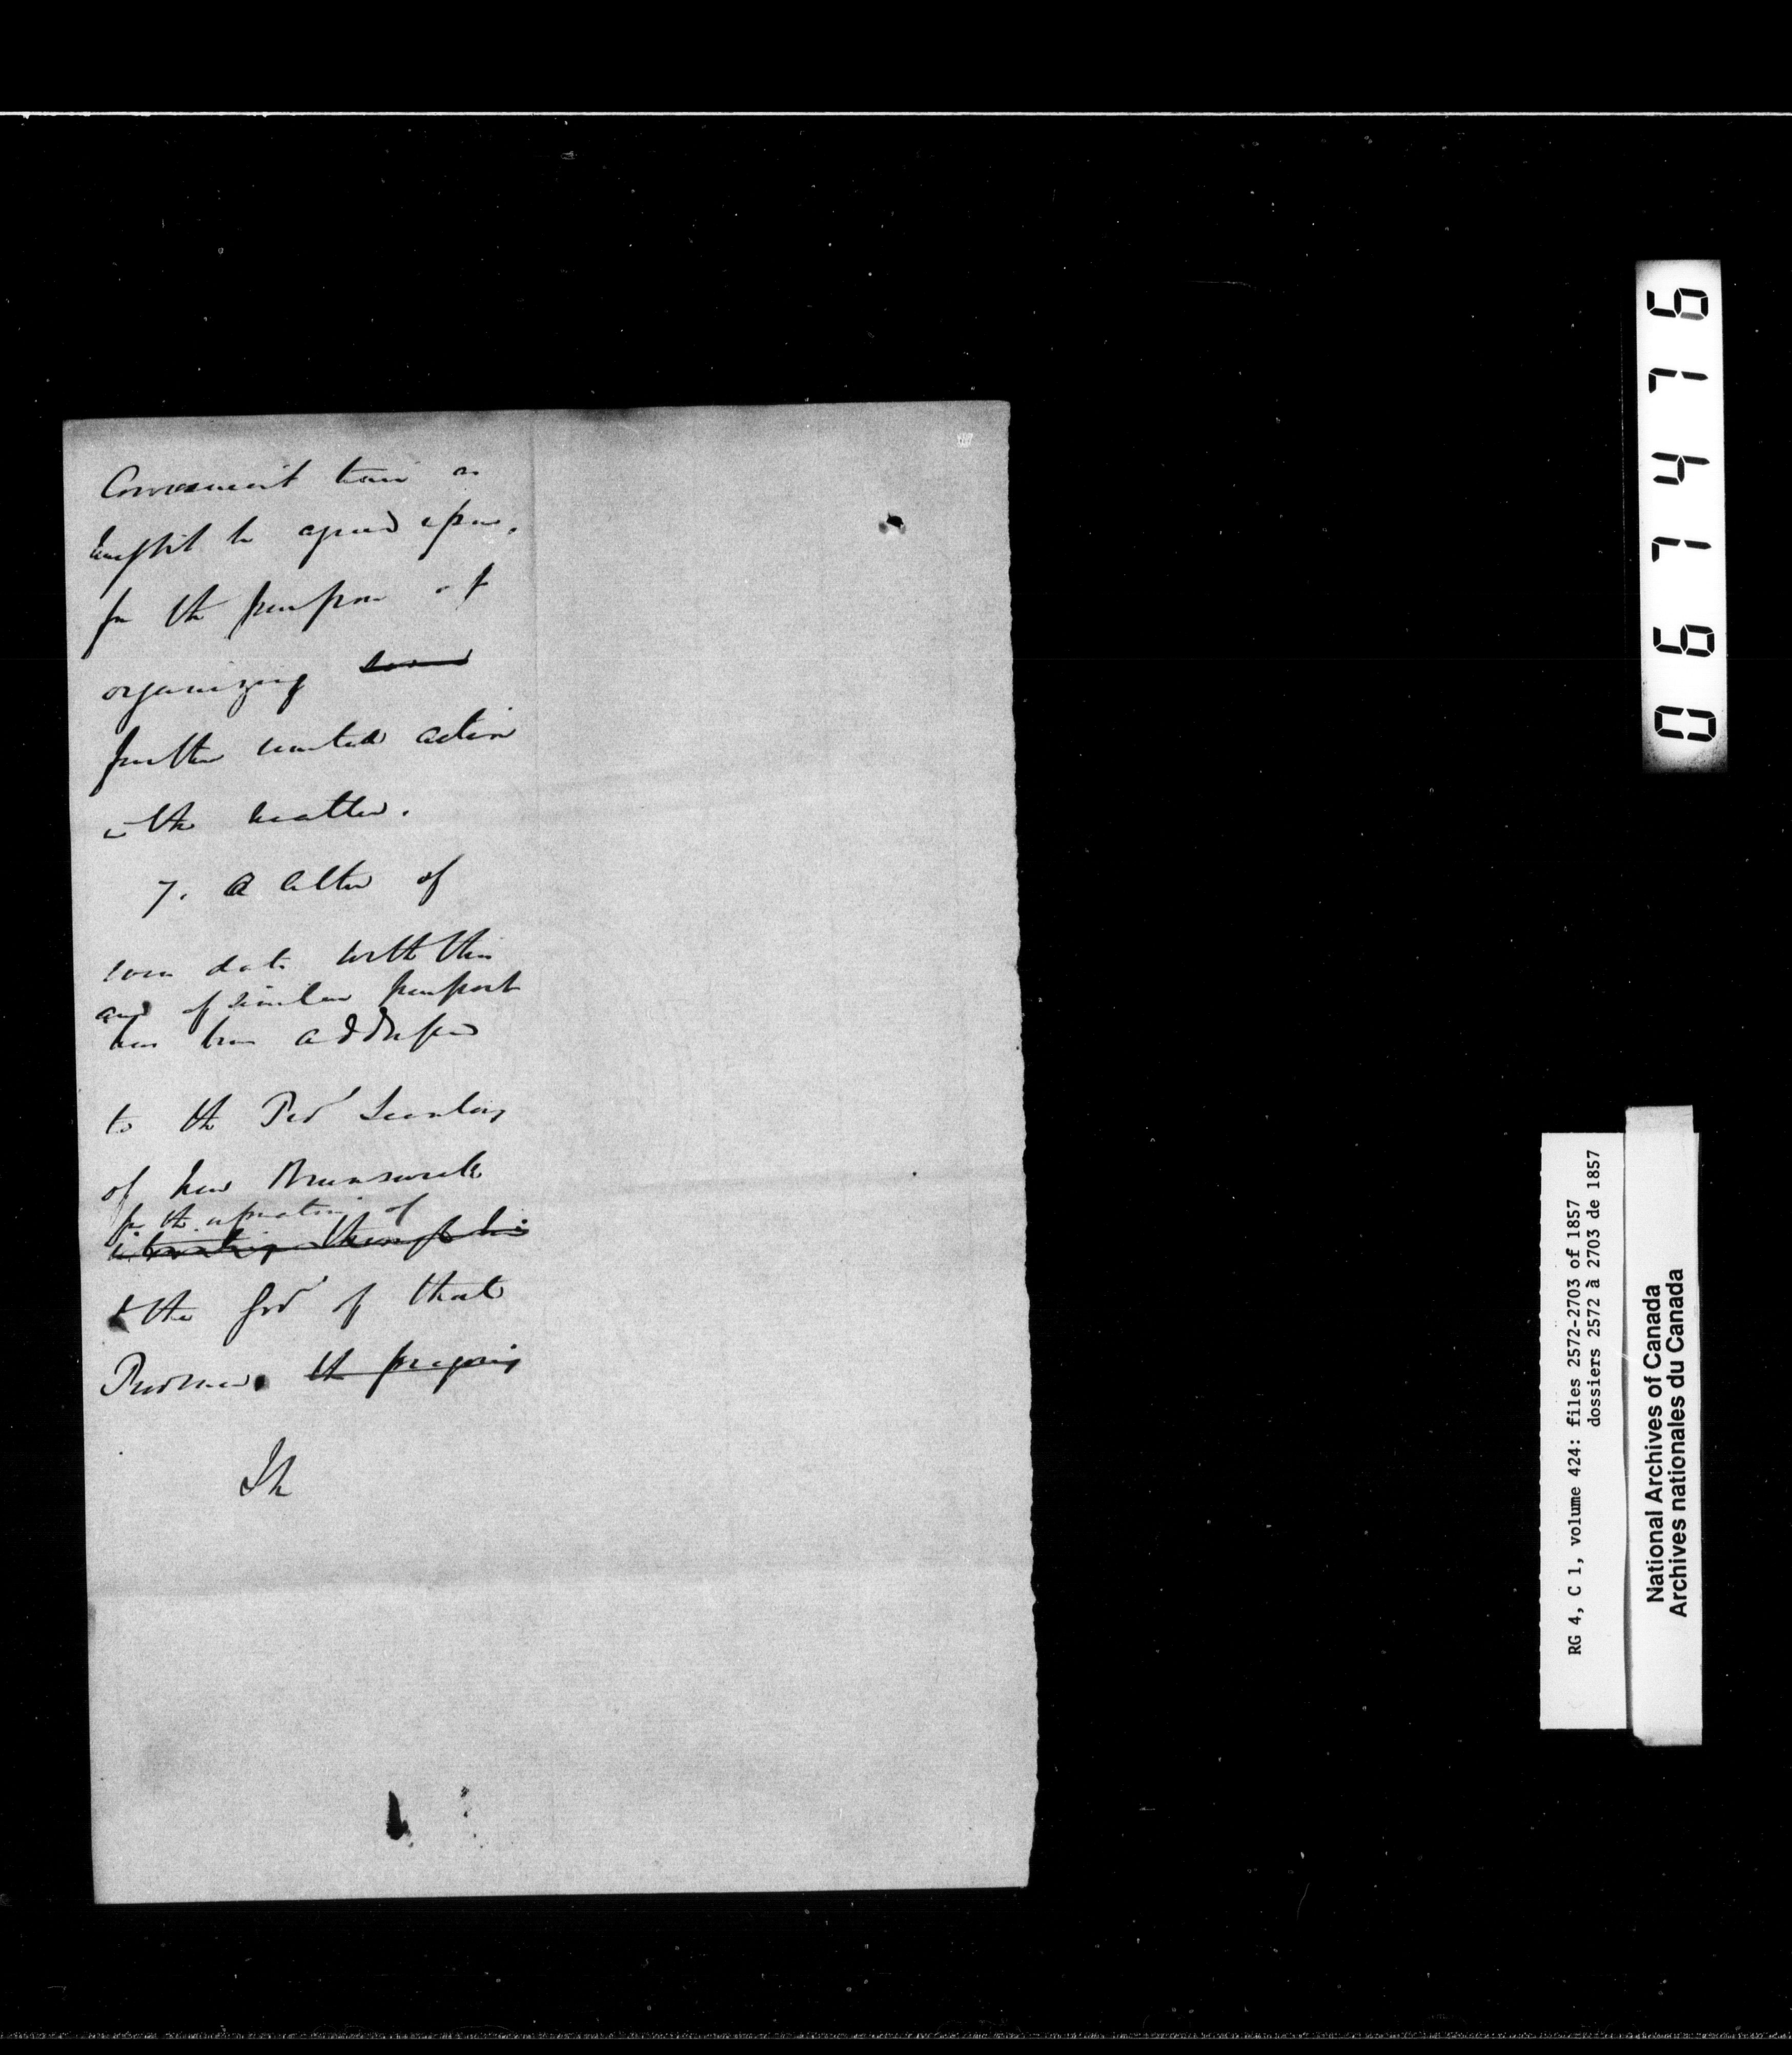 Convenient time as
might be agreed upon,
for the purpose of
organizing some
further united action
in the matter.
7. A letter of
even date with this
and of similar purport
has been addressed
to the Prov Secretary
of New Brunswick
for the information of
through his
the Govt of that
Province. the foregoing
067476
RG 4, C 1, volume 424: files 2572-2703 of 1857
dossiers 2572 à 2703 de 1857
National Archives of Canada
Archives nationales du Canada